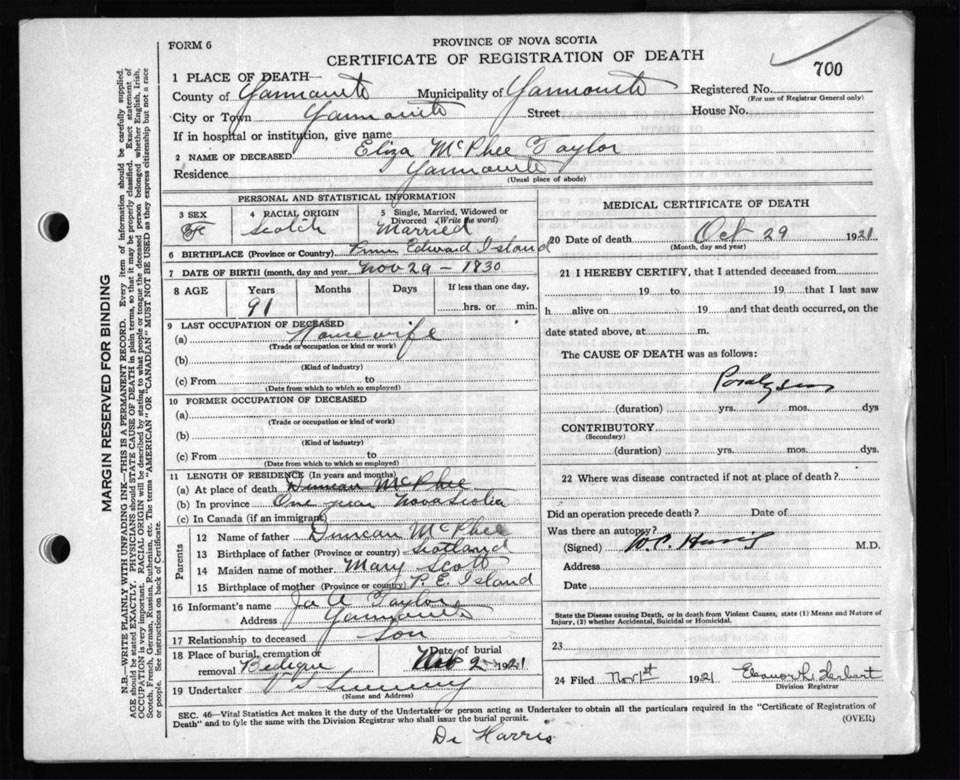 PROVINCE OF NOVA SCOTIA
FORM 6
CERTIFICATE OF REGISTRATION OF DEATH
700
1 PLACE OF DEATH—
County of Yarmouth Municipality of Yarmouth Registered No.
(For use of Registrar General only)
City or Town Yarmouth Street House No.
If in hospital or institution, give name
2 NAME OF DECEASED Eliza McPhee Taylor
Residence Yarmouth
(Usual place of abode)
PERSONAL AND STATISTICAL INFORMATION
3 SEX
4 RACIAL ORIGIN Scotch
5 Single, Married, Widowed or Divorced (Write the word) Married
6 BIRTHPLACE (Province or Country) Prince Edward Island
7 DATE OF BIRTH (month, day and year) Nov 29 - 1830
8 AGE Years Months Days If less than one day,
91 hrs. or min.
9 LAST OCCUPATION OF DECEASED
(a) Housewife
(Trade or occupation or kind or work)
(b)
(Kind of industry)
(c) From to
(Date from which to which so employed)
10 FORMER OCCUPATION OF DECEASED
(a)
(Trade or occupation or kind of work)
(b)
(Kind of industry)
(c) From to
(Date from which to which so employed)
11 LENGTH OF RESIDENCE (In years and months)
(a) At place of death Duncan McPhee
(b) In province One year Nova Scotia
(c) In Canada (if an immigrant)
Parents
12 Name of father Duncan McPhee
13 Birthplace of father (Province or country) Scotland
14 Maiden name of mother Mary Scott
15 Birthplace of mother (Province or country) P. E. Island
16 Informant's name Jas A Taylor
Address Yarmouth
17 Relationship to deceased Son
18 Place of burial, cremation or removal Bedeque Date of burial Nov 2 1921
19 Undertaker V S Sweeny
(Name and Address)
MEDICAL CERTIFICATE OF DEATH
20 Date of death Oct 29 1921
(Month, day and year)
21 I HEREBY CERTIFY, that I attended deceased from
19 to 19 that I last saw
h alive on 19 and that death occurred, on
date stated above, at m.
The CAUSE OF DEATH was as follows:
Paralysis
(duration) yrs. mos. dys
CONTRIBUTORY
(Secondary)
(duration) yrs. mos. dys.
22 Where was disease contracted if not at place of death?
Did an operation precede death? Date of
Was there an autopsy?
(Signed) M.D.
Address
Date
State the Disease causing Death, or in death from Violent Causes, state (1) Means and Nature of
Injury, (2) whether Accidental, Suicidal or Homicidal.
23
24 Filed Nov 1st 1921 Eleanor L. Herbert
Division Registrar
SEC. 46—Vital Statistics Act makes it the duty of the Undertaker or person acting as Undertaker to obtain all the particulars required in the "Certificate of Registration of
Death" and to fyle the same with the Division Registrar who shall issue the burial permit.
(OVER)
Dr Harris
MARGIN RESERVED FOR BINDING
N.B.—WRITE PLAINLY WITH UNFADING INK—THIS IS A PERMANENT RECORD. Every item of information should be carefully supplied.
AGE should be stated EXACTLY. PHYSICIANS should STATE CAUSE OF DEATH in plain terms, so that it may be properly classified. Exact statement of
OCCUPATION is very important. RACIAL ORIGIN will be described by stating to what people or tongue the deceased person belonged whether English, Irish,
Scotch, French, German, Russian, Ruthenian, etc. The terms "AMERICAN" OR "CANADIAN" MUST NOT BE USED as they express citizenship but not a race
or people. See instructions on back of Certificate.